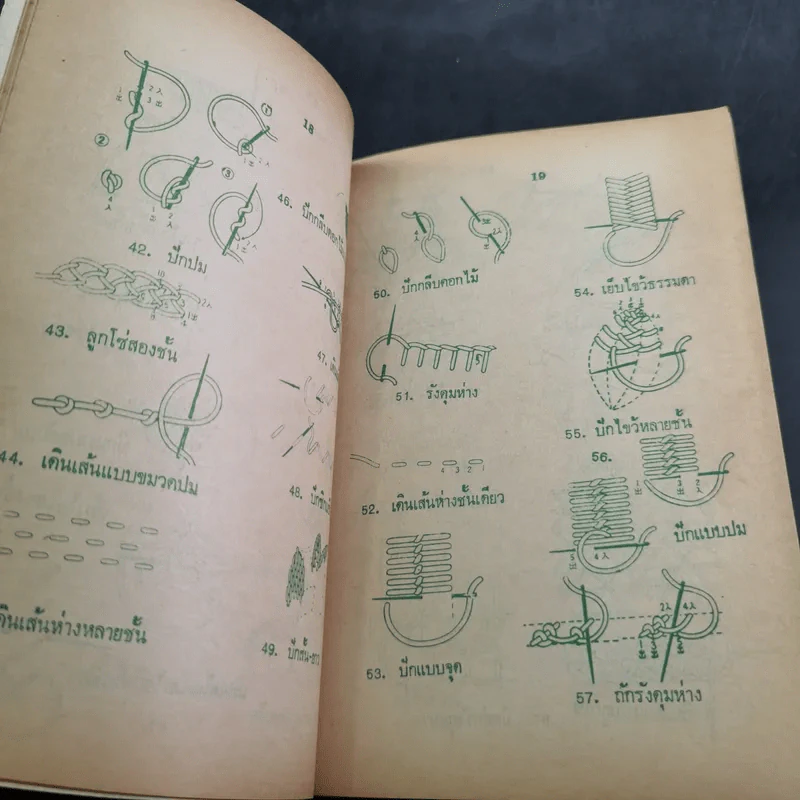 18
42. ปักปม
43. ลูกโซ่สองชั้น
44. เดินเส้นแบบขมวดปม
เดินเส้นห่างหลายชั้น
46. ปักกลีบดอกไม้
47.
48.
49. ปักสั้น-ยาว
19
50. ปักกลีบดอกไม้
51. รังดุมห่าง
52. เดินเส้นห่างชั้นเดียว
53. ปักแบบจุด
54. เย็บไขว้ธรรมดา
55. ปักไขว้หลายชั้น
56.
ปักแบบปม
57. ถักรังดุมห่าง